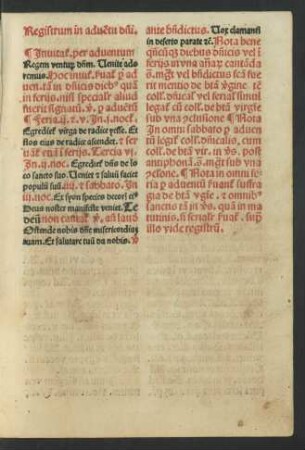 Registrum in aduētu dñi.
¶ Inuitať. per aduentum
Regem venturū dñm. Uenite ado
remus. Hoc inuit. ẜuať p̱ ad
uen. tā in dñicis dieb9 quā
in ferijs. nisi speciať aliud
fuerit signatū. v̄. p̱ aduētū
¶ Feria. ij. ⁊. v. In. j. noct̄.
Egrediet̄ virga de radice yesse. Et
flos eius de radice ascendet. ¶ ẜe
ria. iij. ⁊. vi. ¶ Tercia vi.
In. ij. noct̄. Egrediet̄ dñs de lo
co sancto suo. Ueniet vt saluū faciet
populū suū. iiij. ⁊ sabbato. In
iij. noct̄. Ex syon species decori ei9
Deus noster manifeste veniet. Te
deū non cantať. v̄. añ laud̄
Ostende nobis dñe misericordiā
tuam. Et salutare tuū da nobis. v̄
ante bñdictus. Uox clamantis
in deserto parate ⁊c. ¶ Nota bene
dieb9 dñicis vel in
ferijs
mg̃t vel bñdictus
rit mentio de btā v̄gine
coll. dñicať vel feriať simil
legať cū coll. de btā virgine
sub vna ɔclusione ¶ Nota
In omni sabbato p̱ aduen
tū legiť coll. dñicalis, cum
coll. de btā vir. in v̄s. post
antiphonā. mg̃t sub vna
ɔclusione. ¶ Nota in omni feria
p̱ aduentū ẜuant suffra
gia de btā v̄gīe. ⁊ omnib9
sanctis tā in v̄s. quā in ma
tutinis. ẜuať. sup̱
illo vide registrū.